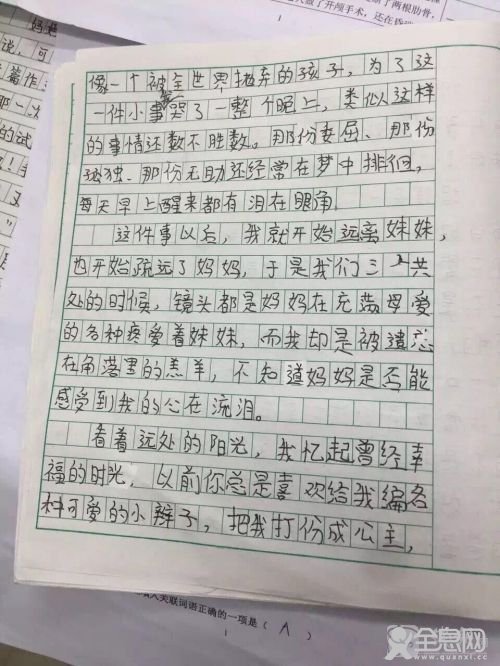 断了两根肋骨,
做了开颅手术,还在昏
1
妈是
说,可
篇作
那一次
的试
像一个被全世界抛弃的孩子,为了这
一件小事哭了一整个晚上,类似这样
的事情还数不胜数。那份委屈、那份
孤独、那份无助还经常在梦中排徊,
每天早上醒来都有泪在眼角。
这件事以后,我就开始远离妹妹,
也开始疏远了妈妈,于是我们三人共
处的时候,镜头都是妈妈在充满母爱
的各种疼爱着妹妹,而我却是被遗忘
在角落里的羔羊,不知道妈妈是否能
感受到我的心在流泪。
看着远处的阳光,我忆起曾经幸
福的时光,以前你总是喜欢给我编各
种可爱的小辫子,把我打份成公主,
入关联词语正确的一项是( A )
1
全息网
www.quanxi.cc